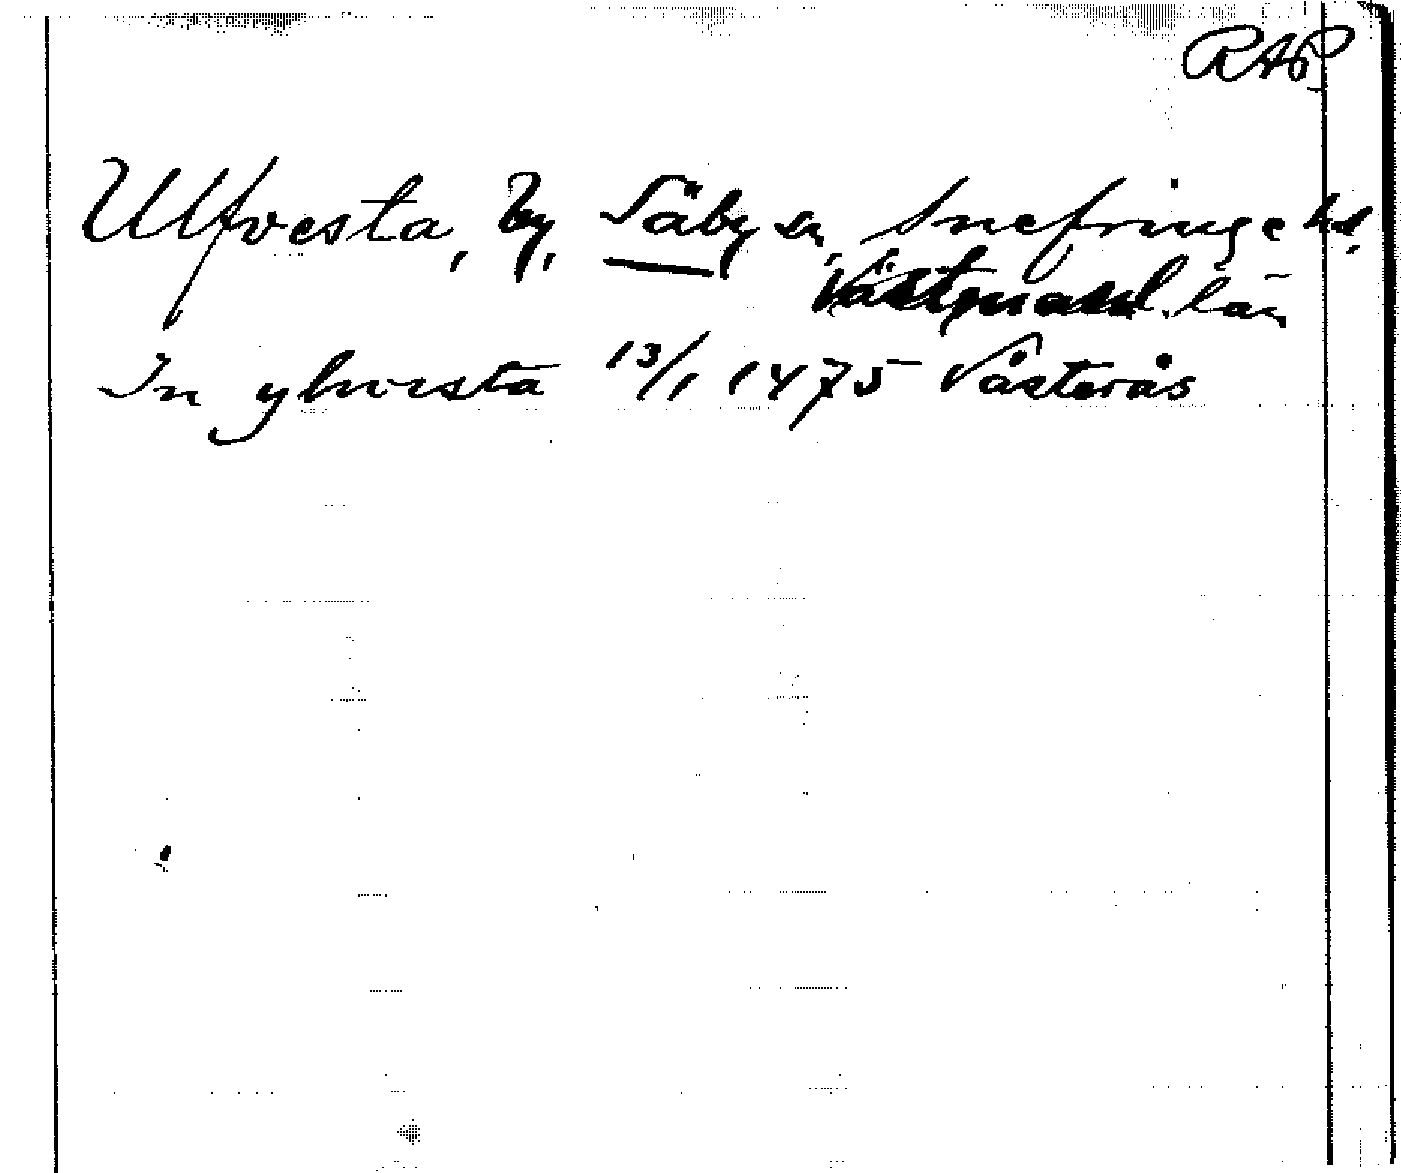 RAP
Ulfvesta, by, Säby sn, Snefringe hd,
Västmanl. län
In ylvirsta 13/1 1475 Västerås